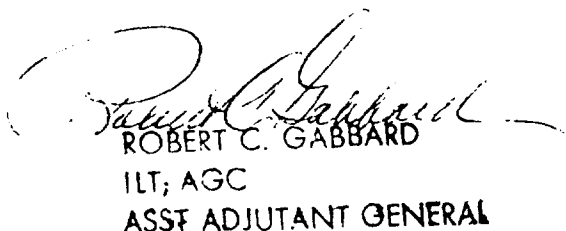 Robert C. Gabbard
ROBERT C. GABBARD
1LT; AGC
ASST ADJUTANT GENERAL